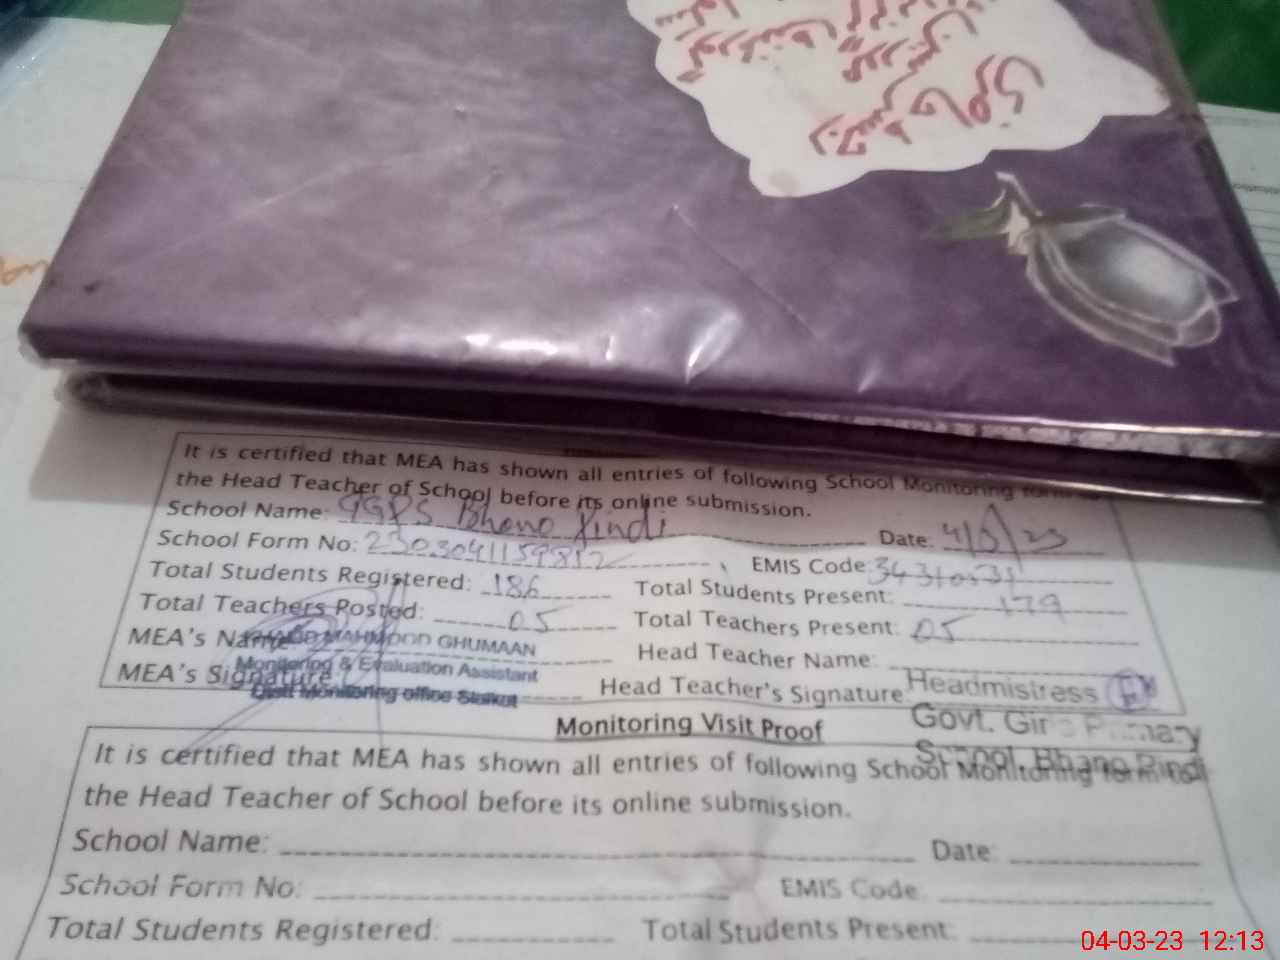 رجسٹر حاضری
It is certified that MEA has shown all entries of following School Monitoring
the Head Teacher of School before its online submission.
School Name: GGPS Bhano Pindi Date: 4/3/23
School Form No: 2303041159812 EMIS Code:
Total Students Registered: 186 Total Students Present: 179
Total Teachers Posted: 05 Total Teachers Present: 05
MEA's Name MAHMOOD GHUMAAN Head Teacher Name:
Monitoring & Evaluation Assistant
MEA's Signature Head Teacher's Signature Headmistress
Distt Monitoring office Sialkot
Monitoring Visit Proof Govt. Girls Primary
School, Bhano Pindi
It is certified that MEA has shown all entries of following School Monitoring form to
the Head Teacher of School before its online submission.
School Name: Date:
School Form No: EMIS Code:
Total Students Registered: Total Students Present:
04-03-23 12:13